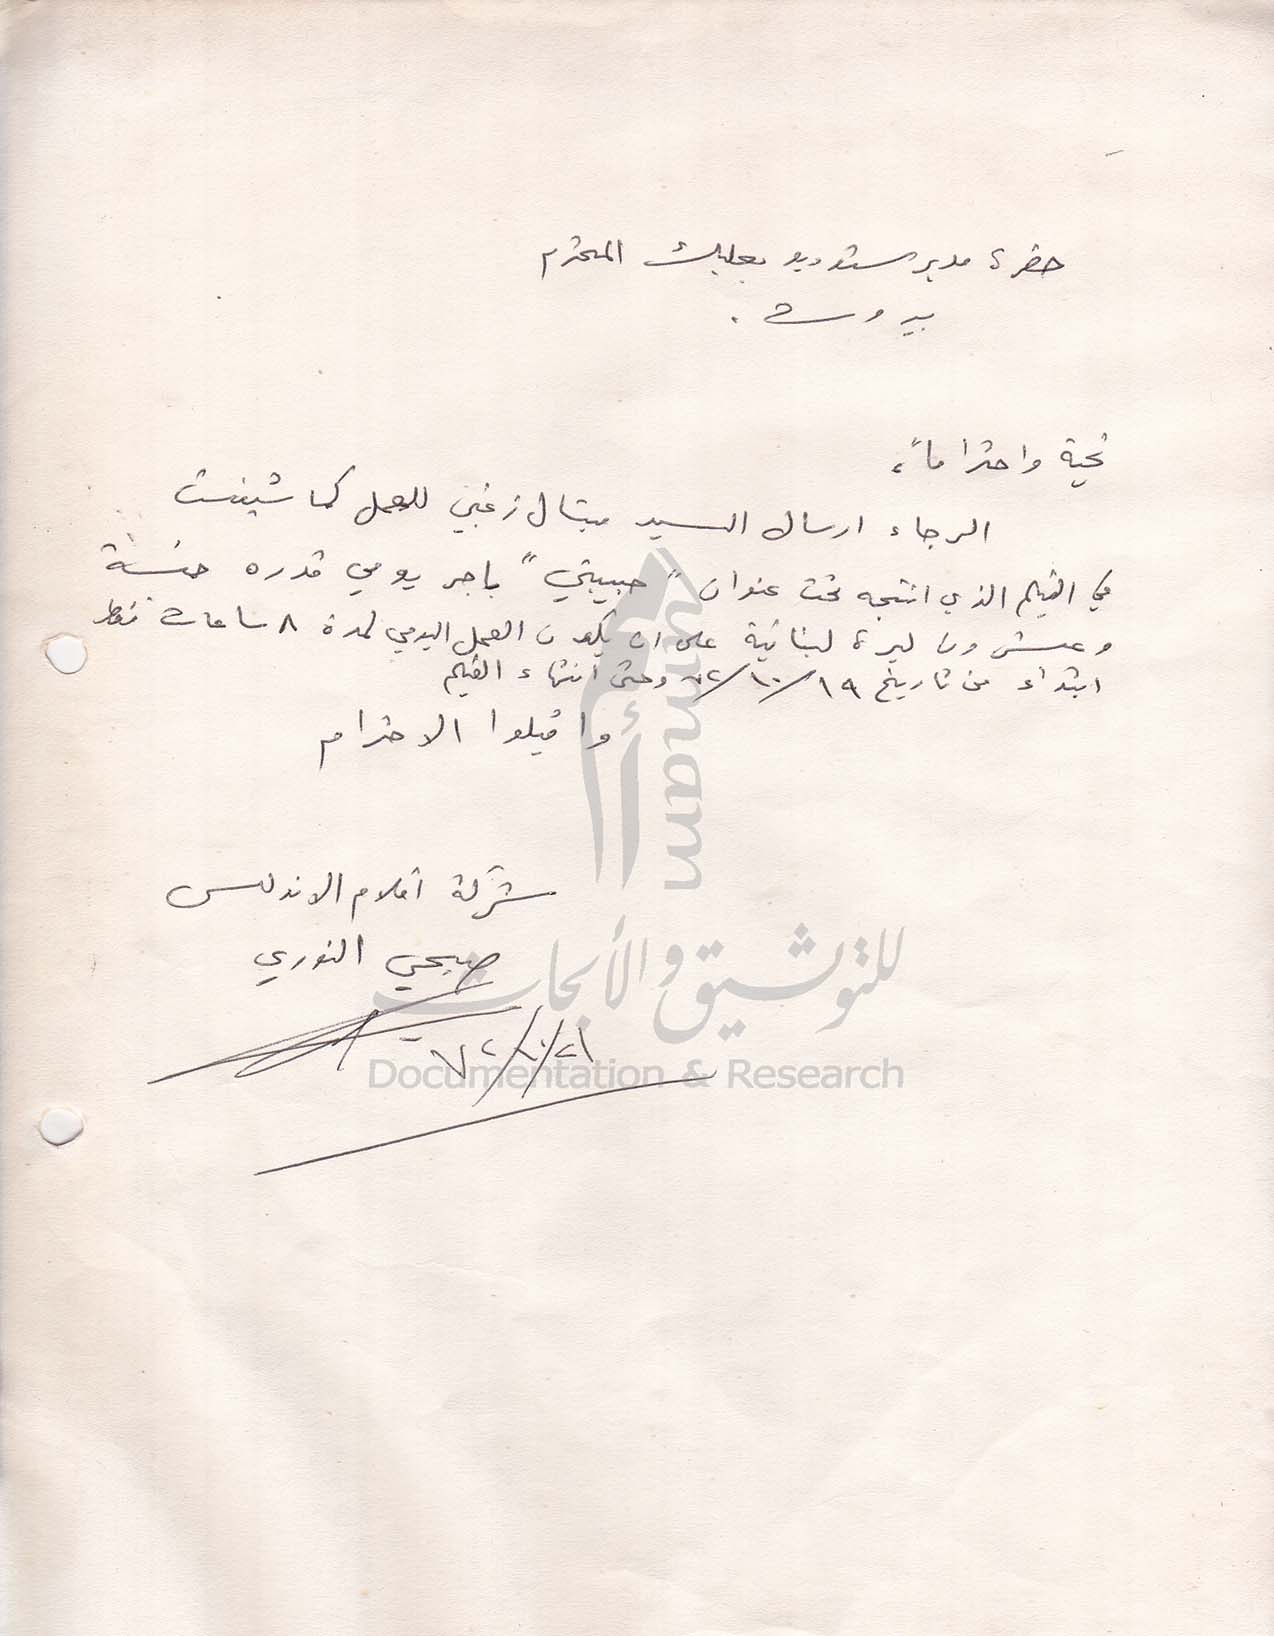 حضرة مدير ستوديو بعلبك المحترم
بيروت.
تحية واحتراماً،
الرجاء ارسال السيد ميشال زغبي للعمل كماشينست
في الفيلم الذي انتجه تحت عنوان "حبيبتي" باجر يومي قدره خمسة
وعشرون ليرة لبنانية على ان يكون العمل اليومي لمدة ٨ ساعات فقط
ابتداء من تاريخ ١٩/١٠/٧٢ وحتى انتهاء الفيلم
واقبلوا الاحترام
شركة افلام الاندلس
صبحي النوري
٢١/١٠/٧٢
umam
أمم
للتوثيق والأبحاث
Documentation & Research